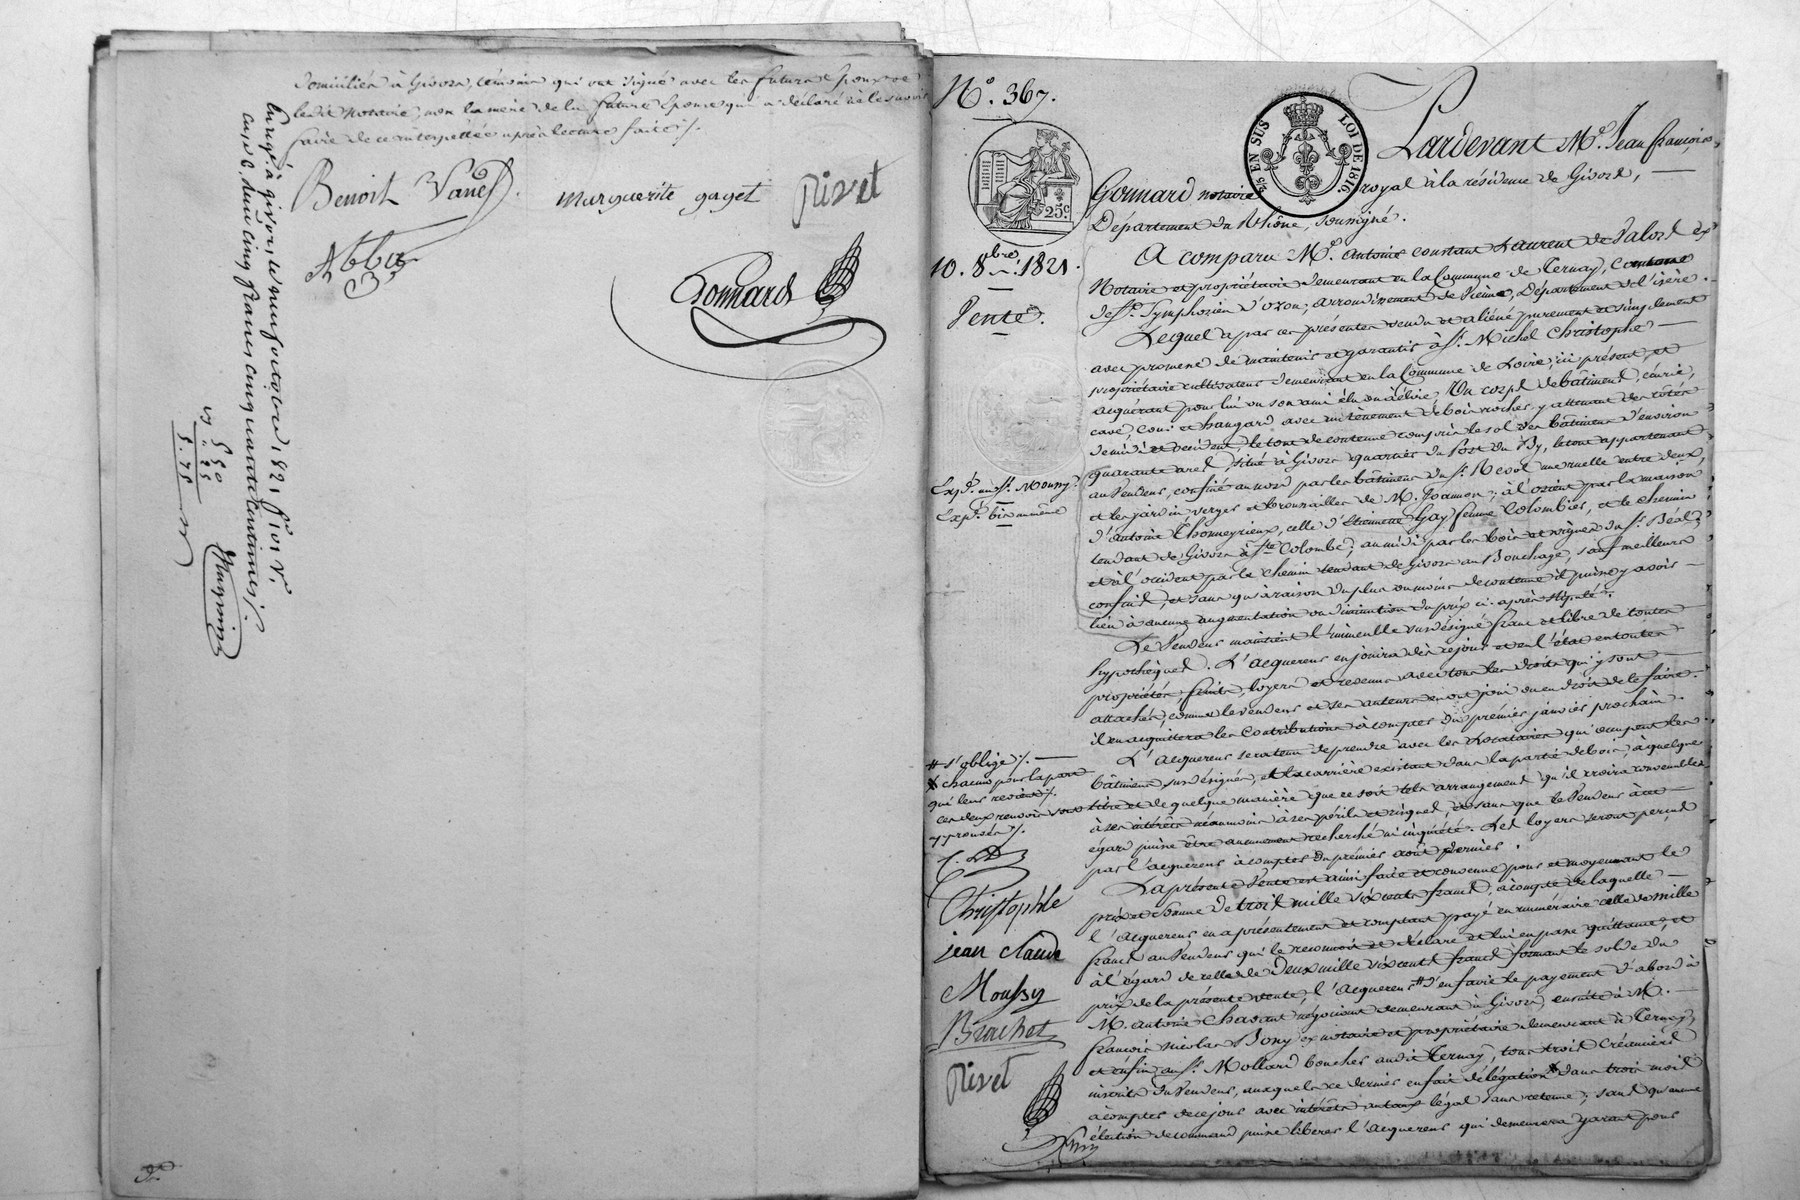 domiciliés à Givors, témoins qui ont signé avec les futurs Epoux et
ledit Notaire, non la mère de la future Epouse qui a déclaré ne le savoir
faire de ce interpellée après lecture faite ./.
Benoit Vanel
Marguerite gayet
Rivet
Gonnard
Enregé à givors, le neuf octobre 1821, fo 101 Vo
cases 2. Reçu cinq francs cinquante centimes
5 50
. 55
Margnin
No. 367.
25 EN SUS
LOI DE 1816
25c
10. 8bre 1821.
Vente.
Expd. au Sr. Moussy
Expd. bis au même
Pardevant Me. Jean françois
Gonnard notaire royal à la résidence de Givors,
Département du Rhône, soussigné.
A comparu Mr. Antoine constant Laurent de Valors ex
Notaire et propriétaire demeurant en la Commune de Ternay, Canton
de St. Symphorien d'ozon, arrondissement de Vienne, Département de l'isère.
Lequel a par ces présentes vendu et aliéné purement et simplement
avec promesse de maintenir et garantir à Sr. Michel Christophe
propriétaire cultivateur demeurant en la Commune de Loire, ici présent, et
acquérant pour lui ou son ami élu ou à élire, Un corps de bâtiment, écurie,
cave, Cour et hangard avec un tènement de bois rocher y attenant des côtés
de midi et occident, le tout de contenue compris le sol des bâtimens d'environ
quarante ares, situé à Givors quartier du Port du By, le tout appartenant
au Vendeur, confiné au nord par les bâtimens du Sr. Revol une ruelle entre deux,
et les jardin verger et brousailles de M. Joannon; à l'orient par la maison
d'antoine Thomeyrieux, celle d'Etiennette Gay femme Colombier, et le chemin
tendant de Givors à Ste Colombe; au midi par les bois et vignes du Sr. Béal,
et à l'occident par le chemin tendant de Givors au Bouchage, sauf meilleurs
confins, et sans qu'à raison du plus ou moins de contenue il puisse y avoir
lieu à aucune augmentation ou diminution du prix ci après stipulé.
Le Vendeur maintient l'immeuble susdésigné franc et libre de toutes
hypothèques. L'acquereur en jouira dès ce jour et en l'état en toutes
propriétés, fruits, loyers et revenus avec tous les droits qui y sont
attachés, comme le vendeur et ses auteurs en ont joui ou eu droit de le faire.
il en acquittera les Contributions à compter du premier janvier prochain.
L'acquereur sera tenu de prendre avec les Locataires qui occupent les
bâtimens susdésignés, et la carrière existant dans la partie de bois à quelque
titre et de quelque manière que ce soit tels arrangemens qu'il croira convenables
à ses intérêts néanmoins à ses périls et risques, et sans que le Vendeur à cet
égard puisse être aucunement recherché ni inquiété. Les loyers seront perçus
par l'acquereur à compter du premier août dernier.
La présente Vente est ainsi faite et convenue pour et moyennant le
prix et somme de trois mille six cents francs, à compte de laquelle
l'acquereur en a présentement et comptant payé en numéraire celle de mille
francs au Vendeur qui le reconnoit et déclare et lui en passe quittance; et
à l'égard de celle de Deux mille six cents francs formant le solde du
prix de la présente vente, l'acquereur # d'en faire le payement d'abord à
M. antoine Chavant négociant demeurant à Givors, ensuite à M.
françois Nicolas Bony ex notaire et propriétaire demeurant à Ternay,
et enfin au Sr. Mollard boucher audit Ternay, tous trois Créanciers
inscrits du Vendeur, auxquels ce dernier en fait délégation * dans trois mois
à compter de ce jour avec intérêts au taux légal sans retenue; sans qu'aucune
élection de command puisse libérer l'acquereur qui demeurera garant pour
# s'oblige ./.
* chacun pour la part
qui leur revient ./.
ces deux renvois sont
approuvés ./.
Christophle
jean claude
Moussy
Brachet
Rivet